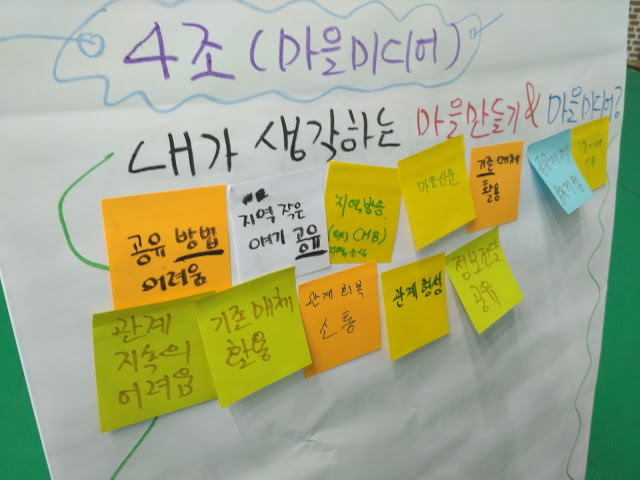 4조 (마을미디어)
내가 생각하는 마을만들기 & 마을미디어?
공유 방법
어려움
지역 작은
이야기 공유
지역방송
(HB)
마을신문
기존 매체
활용
관계
지속의
어려움
기존 매체
활용
관계 회복
소통
관계 형성
정보전달
공유